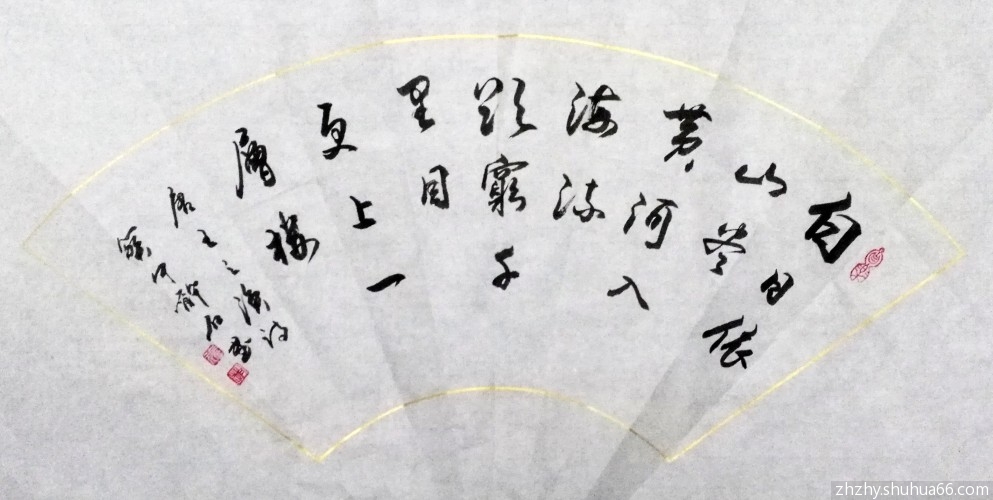 白日依
山尽
黄河入
海流
欲窮千
里目
更上一
層樓
唐王之渙詩
zhzhy.shuhua66.com